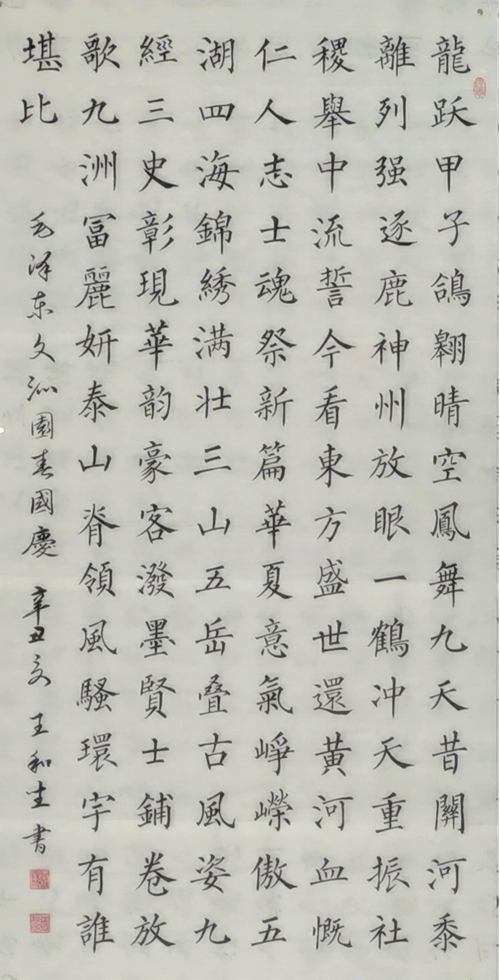 龍跃甲子鴿翱晴空鳳舞九天昔關河黍
離列强逐鹿神州放眼一鶴冲天重振社
稷舉中流誓今看東方盛世還黄河血慨
仁人志士魂祭新篇華夏意氣崢嶸傲五
湖四海錦綉满壮三山五岳叠古風姿九
經三史彰現華韵豪客潑墨賢士鋪卷放
歌九洲富麗妍泰山脊領風騷環宇有誰
堪比
毛泽东文沁園春國慶 辛丑文王和生書